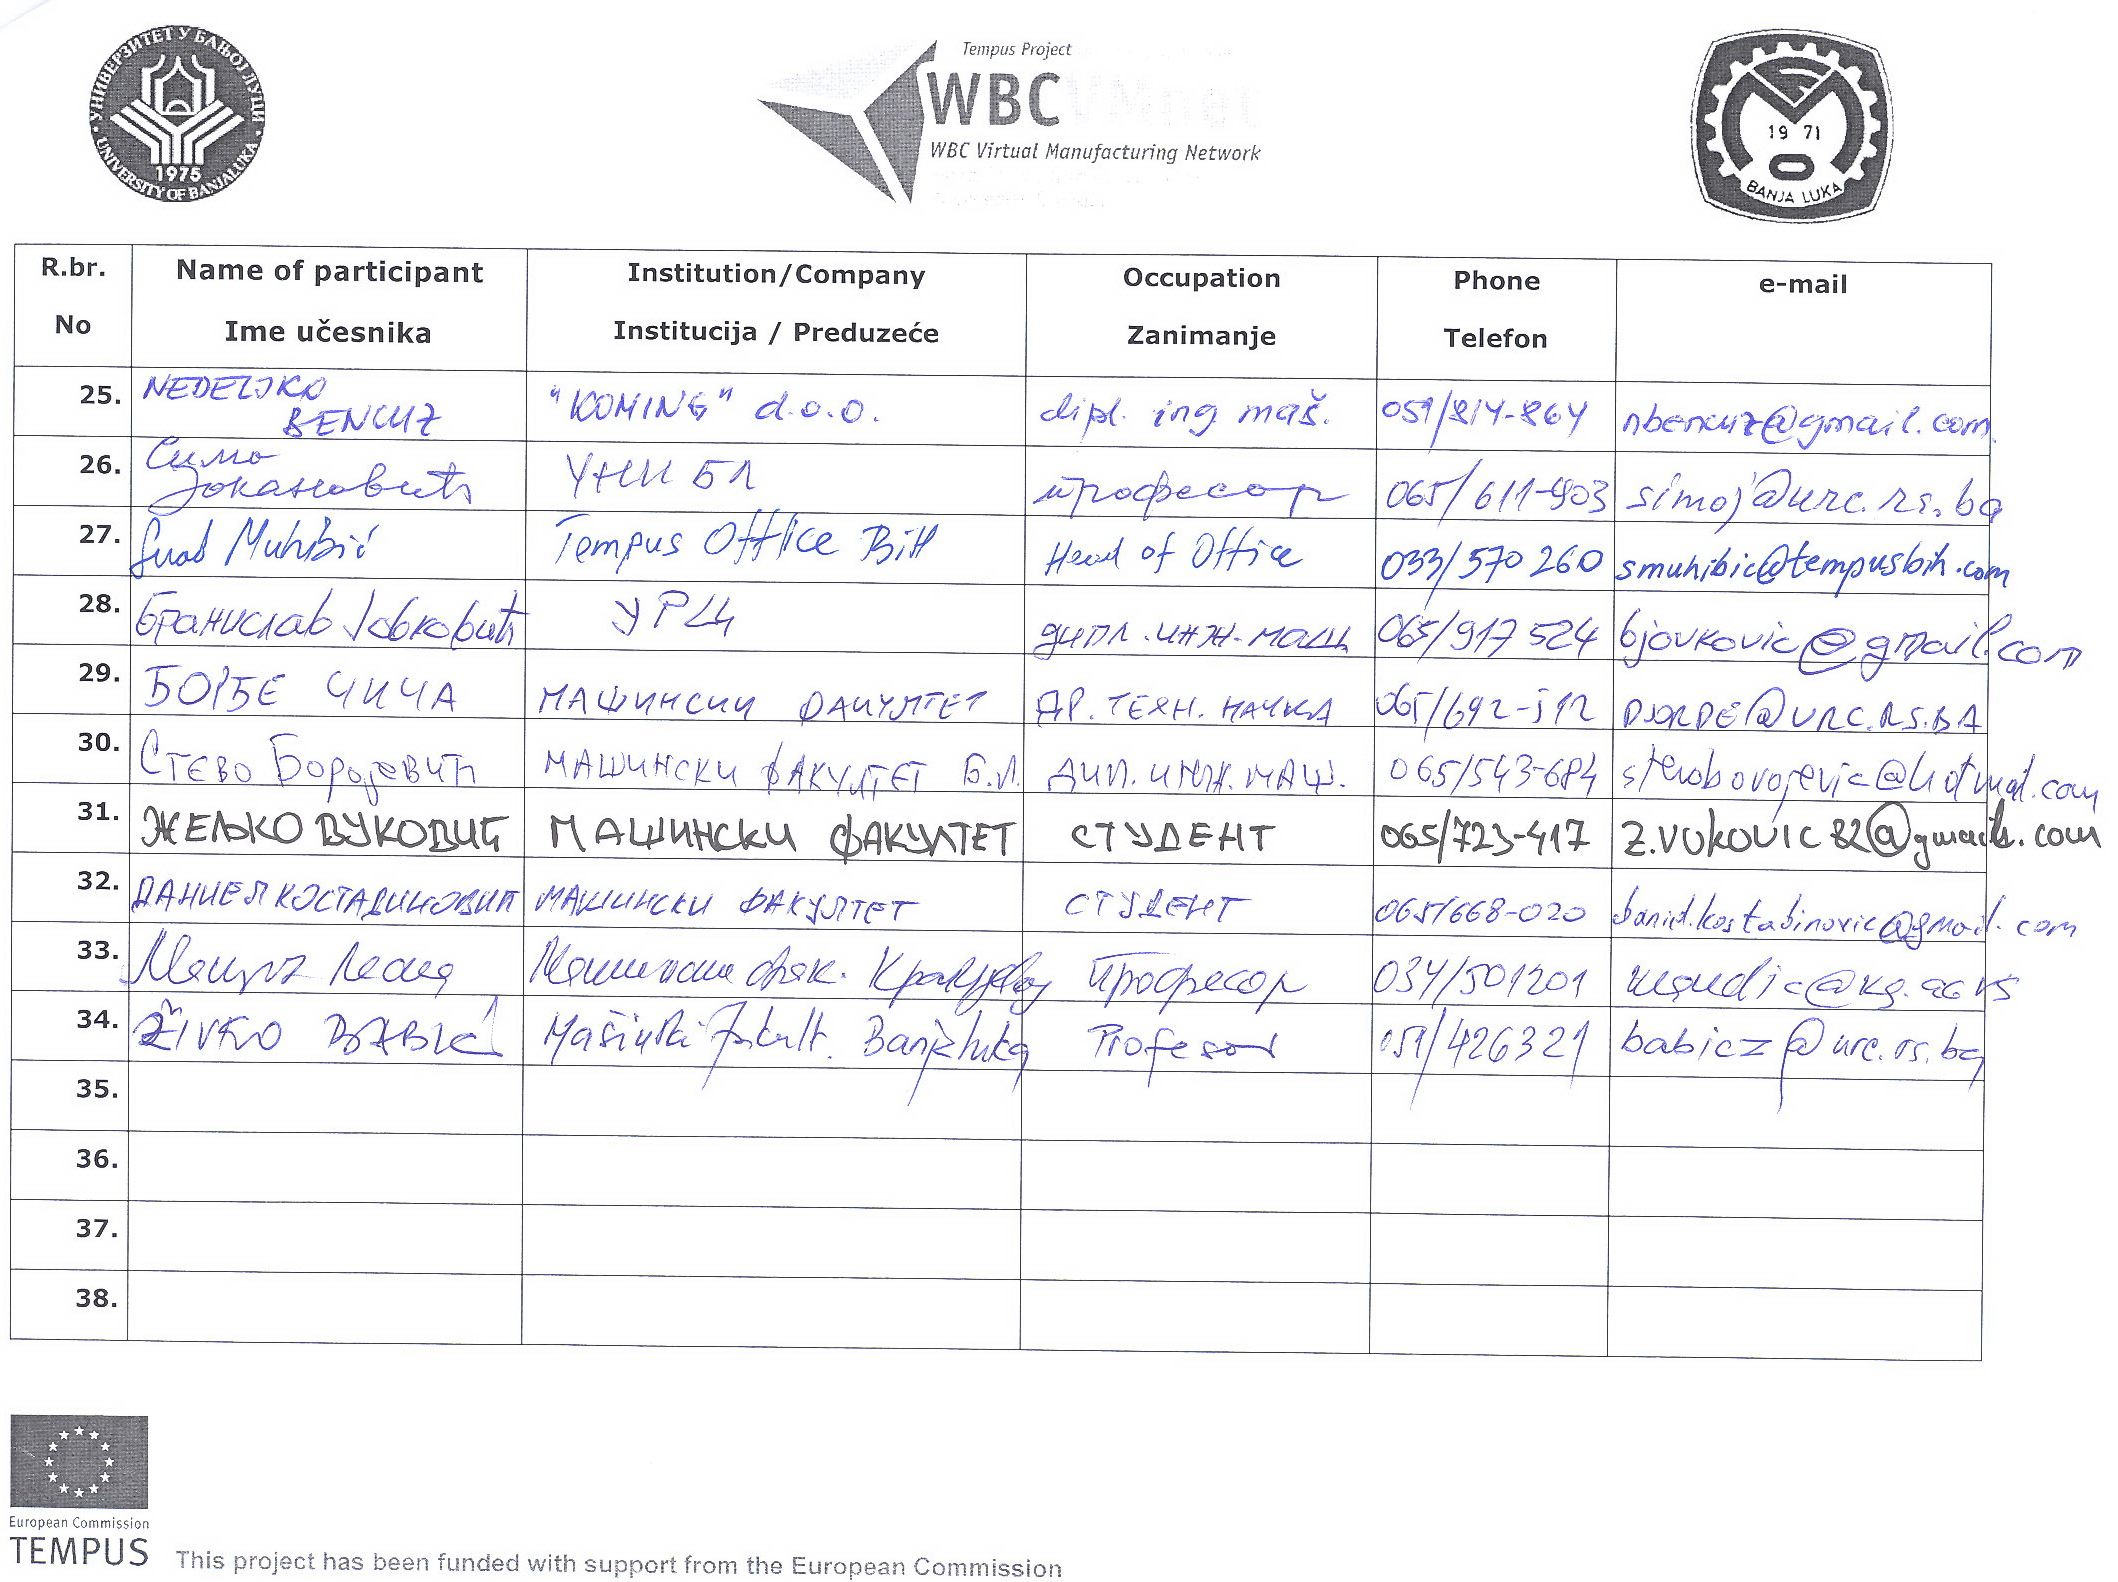 УНИВЕРЗИТЕТ У БАЊОЈ ЛУЦИ
1975
UNIVERSITY OF BANJALUKA
Tempus Project
WBC
WBC Virtual Manufacturing Network
19 71
BANJA LUKA
R.br. Name of participant Institution/Company Occupation Phone e-mail
No Ime učesnika Institucija / Preduzeće Zanimanje Telefon
25. NEDELJKO BENCUZ "KOMING" d.o.o. dipl. ing. maš. 051/814-864 nbencuz@gmail.com
26. Симо Јокановић УНИ БЛ професор 065/611-903 simoj@urc.rs.ba
27. Suad Muhibić Tempus Office BiH Head of Office 033/570 260 smuhibic@tempusbih.com
28. Бранислав Јовковић УРЦ дипл.инж.маш 065/917 524 bjovkovic@gmail.com
29. ЂОРЂЕ ЧИЧА МАШИНСКИ ФАКУЛТЕТ ДР. ТЕХН. НАУКА 065/692-512 DJORDE@URC.RS.BA
30. СТЕВО Боројевић МАШИНСКИ ФАКУЛТЕТ Б.Л. ДИП. ИНЖ. МАШ. 065/543-684 stevoborojevic@hotmail.com
31. ЖЕЉКО ВУКОВИЋ МАШИНСКИ ФАКУЛТЕТ СТУДЕНТ 065/723-417 Z.VUKOVIC82@gmail.com
32. ДАНИЕЛ КОСТАДИНОВИЋ МАШИНСКИ ФАКУЛТЕТ СТУДЕНТ 065/668-020 daniel.kostadinovic@gmail.com
33. Машински фак. Крагујевац Професор 034/501201
34. ŽIVKO BABIĆ Mašinski fakult. Banja Luka Profesor 051/426321 babicz@urc.rs.ba
35.
36.
37.
38.
European Commission
TEMPUS This project has been funded with support from the European Commission